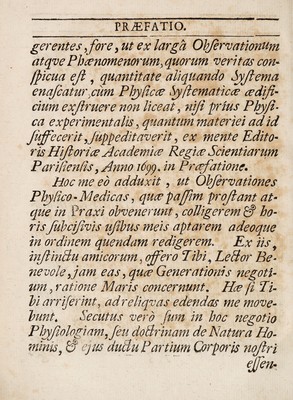 PRÆFATIO.
gerentes, fore, ut ex largâ Observationum
atqve Phænomenorum, quorum veritas con-
spicua est, quantitate aliquando Systema
enascatur, cùm Physicæ Systematicæ ædifi-
cium exstruere non liceat, nisi prius Physi-
ca experimentalis, quantum materiei ad id
suffecerit, suppeditaverit, ex mente Edito-
ris Historiæ Academiæ Regiæ Scientiarum
Parisiensis, Anno 1699. in Præfatione.
Hoc me eò adduxit, ut Observationes
Physico-Medicas, quæ passim prostant at-
que in Praxi obvenerunt, colligerem & ho-
ris subcisivis usibus meis aptarem adeoque
in ordinem quendam redigerem. Ex iis,
instinctu amicorum, offero Tibi, Lector Be-
nevole, jam eas, quæ Generationis negoti-
um, ratione Maris concernunt. Hæ si Ti-
bi arriserint, ad reliqvas edendas me move-
bunt. Secutus verò sum in hoc negotio
Physiologiam, seu doctrinam de Natura Ho-
minis, & ejus ductu Partium Corporis nostri
essen-